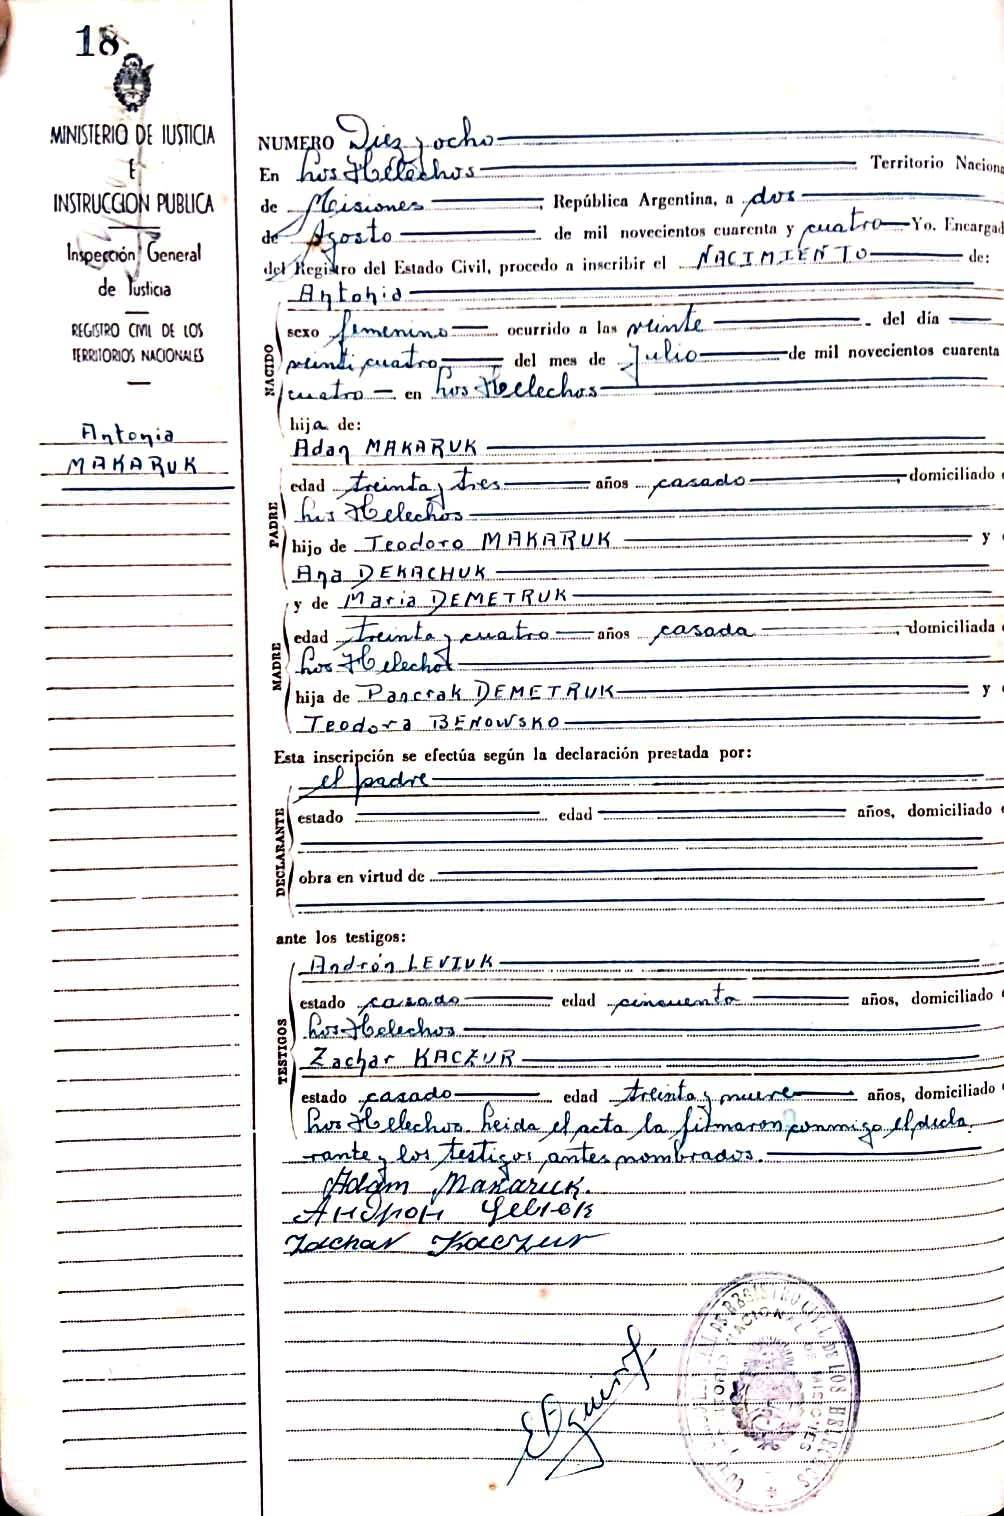 18
MINISTERIO DE JUSTICIA
E
INSTRUCCION PUBLICA
Inspección General
de Justicia
REGISTRO CIVIL DE LOS
TERRITORIOS NACIONALES
Antonia
MAKARUK
NUMERO Diez y ocho
En Los Helechos Territorio Naciona
de Misiones, República Argentina, a dos
de Agosto de mil novecientos cuarenta y cuatro Yo, Encargad
del Registro del Estado Civil, procedo a inscribir el NACIMIENTO de:
NACIDO
Antonia
sexo femenino ocurrido a las veinte del día
veinticuatro del mes de Julio de mil novecientos cuarenta
cuatro en Los Helechos
hija de:
PADRE
Adan MAKARUK
edad treinta y tres años casado, domiciliado
Los Helechos
hijo de Teodoro MAKARUK y
Ana DEKACHUK
MADRE
y de Maria DEMETRUK
edad treinta y cuatro años casada, domiciliada
Los Helechos
hija de Pancrak DEMETRUK y
Teodora BENOWSKO
Esta inscripción se efectúa según la declaración prestada por:
DECLARANTE
el padre
estado edad años, domiciliado
obra en virtud de
ante los testigos:
TESTIGOS
Andrón LEVIUK
estado casado edad cincuenta años, domiciliado
Los Helechos
Zachar KACZUR
estado casado edad treinta y nueve años, domiciliado
Los Helechos. Leida el acta la firmaron conmigo el decla
rante y los testigos antes nombrados.
Adam Makaruk.
Андрон
Zachar Kaczur